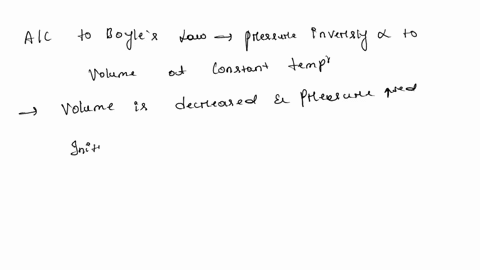 A/C to Boyle's Law → pressure inversly α to
Volume at Constant tempr
→ Volume is decreased & Pressure ↑red
Init